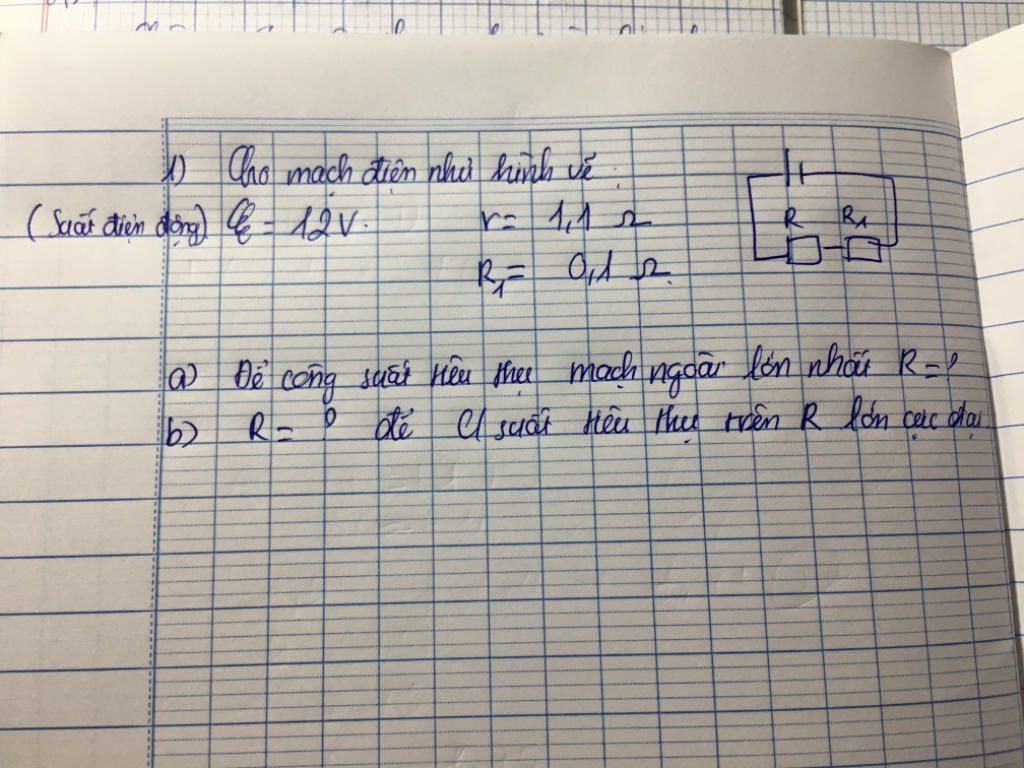 1) Cho mạch điện như hình vẽ.
(Suất điện động) ℰ = 12V. r = 1,1 Ω
R₁ = 0,1 Ω.
R R₁
a) Để công suất tiêu thụ mạch ngoài lớn nhất R = ?
b) R = ? để C suất tiêu thụ trên R lớn cực đại.